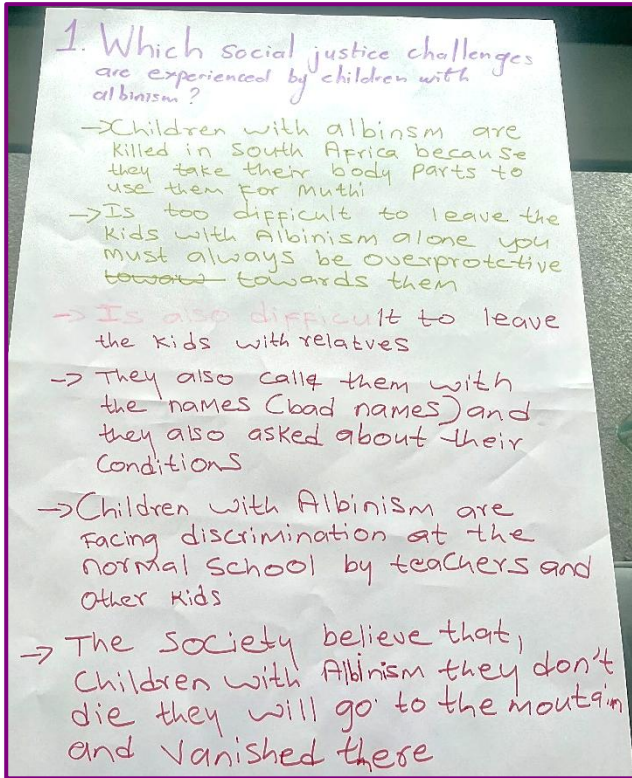 1. Which social justice challenges
are experienced by children with
albinism?
→ Children with albinsm are
killed in South Africa because
they take their body parts to
use them for muthi
→ Is too difficult to leave the
kids with Albinism alone you
must always be overprotctive
towaw towards them
→ Is also difficult to leave
the kids with relatves
→ They also calle them with
the names (bad names) and
they also asked about their
conditions
→ Children with Albinism are
facing discrimination at the
normal school by teachers and
other kids
→ The society believe that,
Children with Albinism they don't
die they will go to the moutain
and vanished there